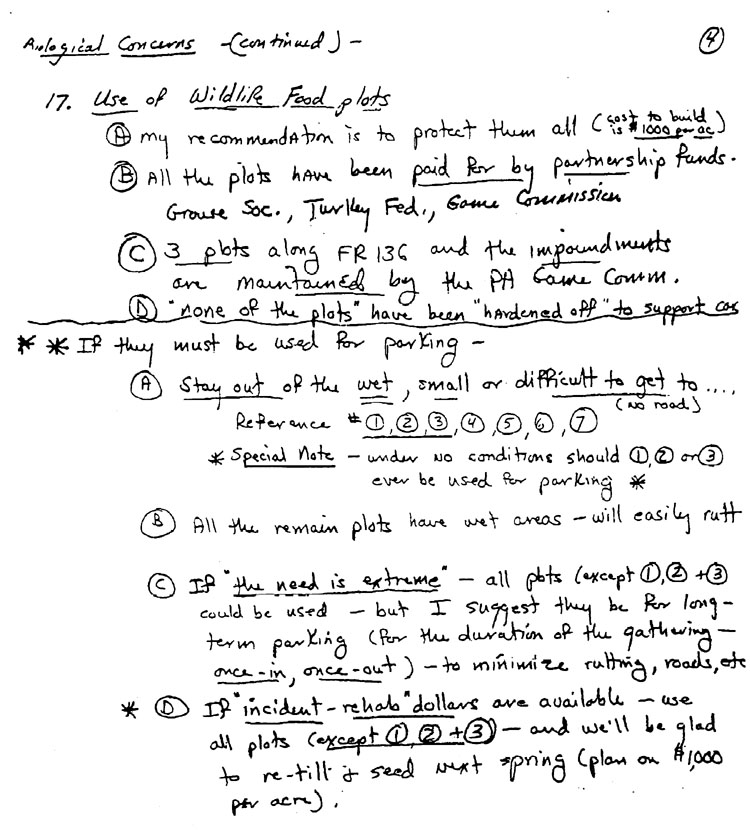 Biological Concerns -(continued)- 4
17. Use of Wildlife Food plots
A my recommendation is to protect them all (cost to build is $1000 per ac)
B All the plots have been paid for by partnership funds.
Grouse Soc., Turkey Fed., Game Commission
C 3 plots along FR 136 and the impoundments
are maintained by the PA Game Comm.
D "none of the plots" have been "hardened off" to support cars
* * If they must be used for parking -
A Stay out of the wet, small or difficult to get to ....
(no road)
Reference # 1, 2, 3, 4, 5, 6, 7
* Special Note - under no conditions should 1, 2 or 3
ever be used for parking *
B All the remain plots have wet areas - will easily rutt
C If "the need is extreme" - all plots (except 1, 2 + 3
could be used - but I suggest they be for long-
term parking (for the duration of the gathering -
once-in, once-out) - to minimize rutting, roads, etc
* D If "incident-rehab" dollars are available - use
all plots (except 1, 2 + 3) - and we'll be glad
to re-till & seed next spring (plan on $1,000
per acre).